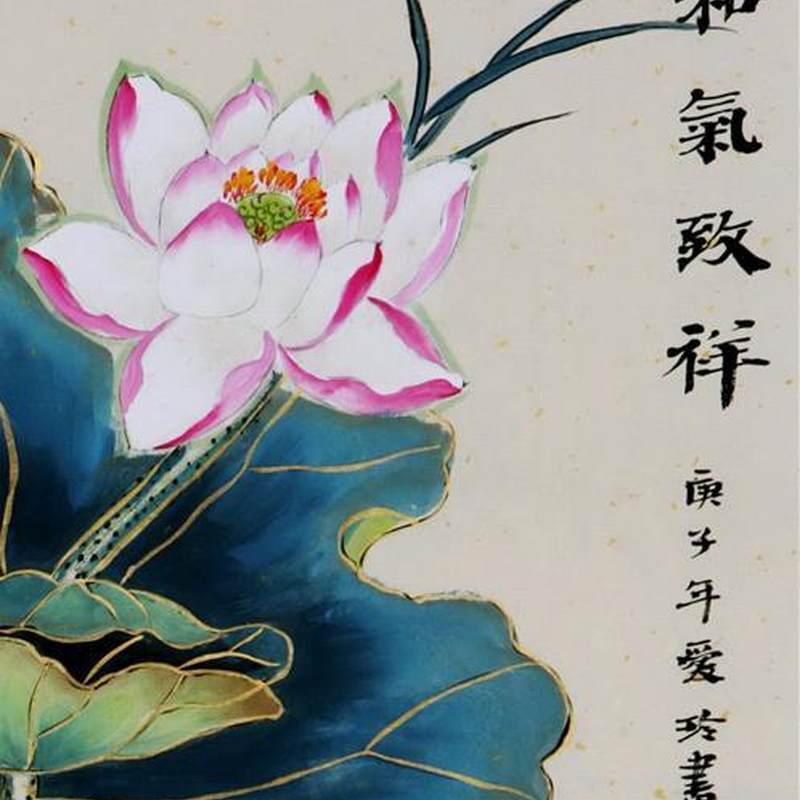 和氣致祥
庚子年愛玲書